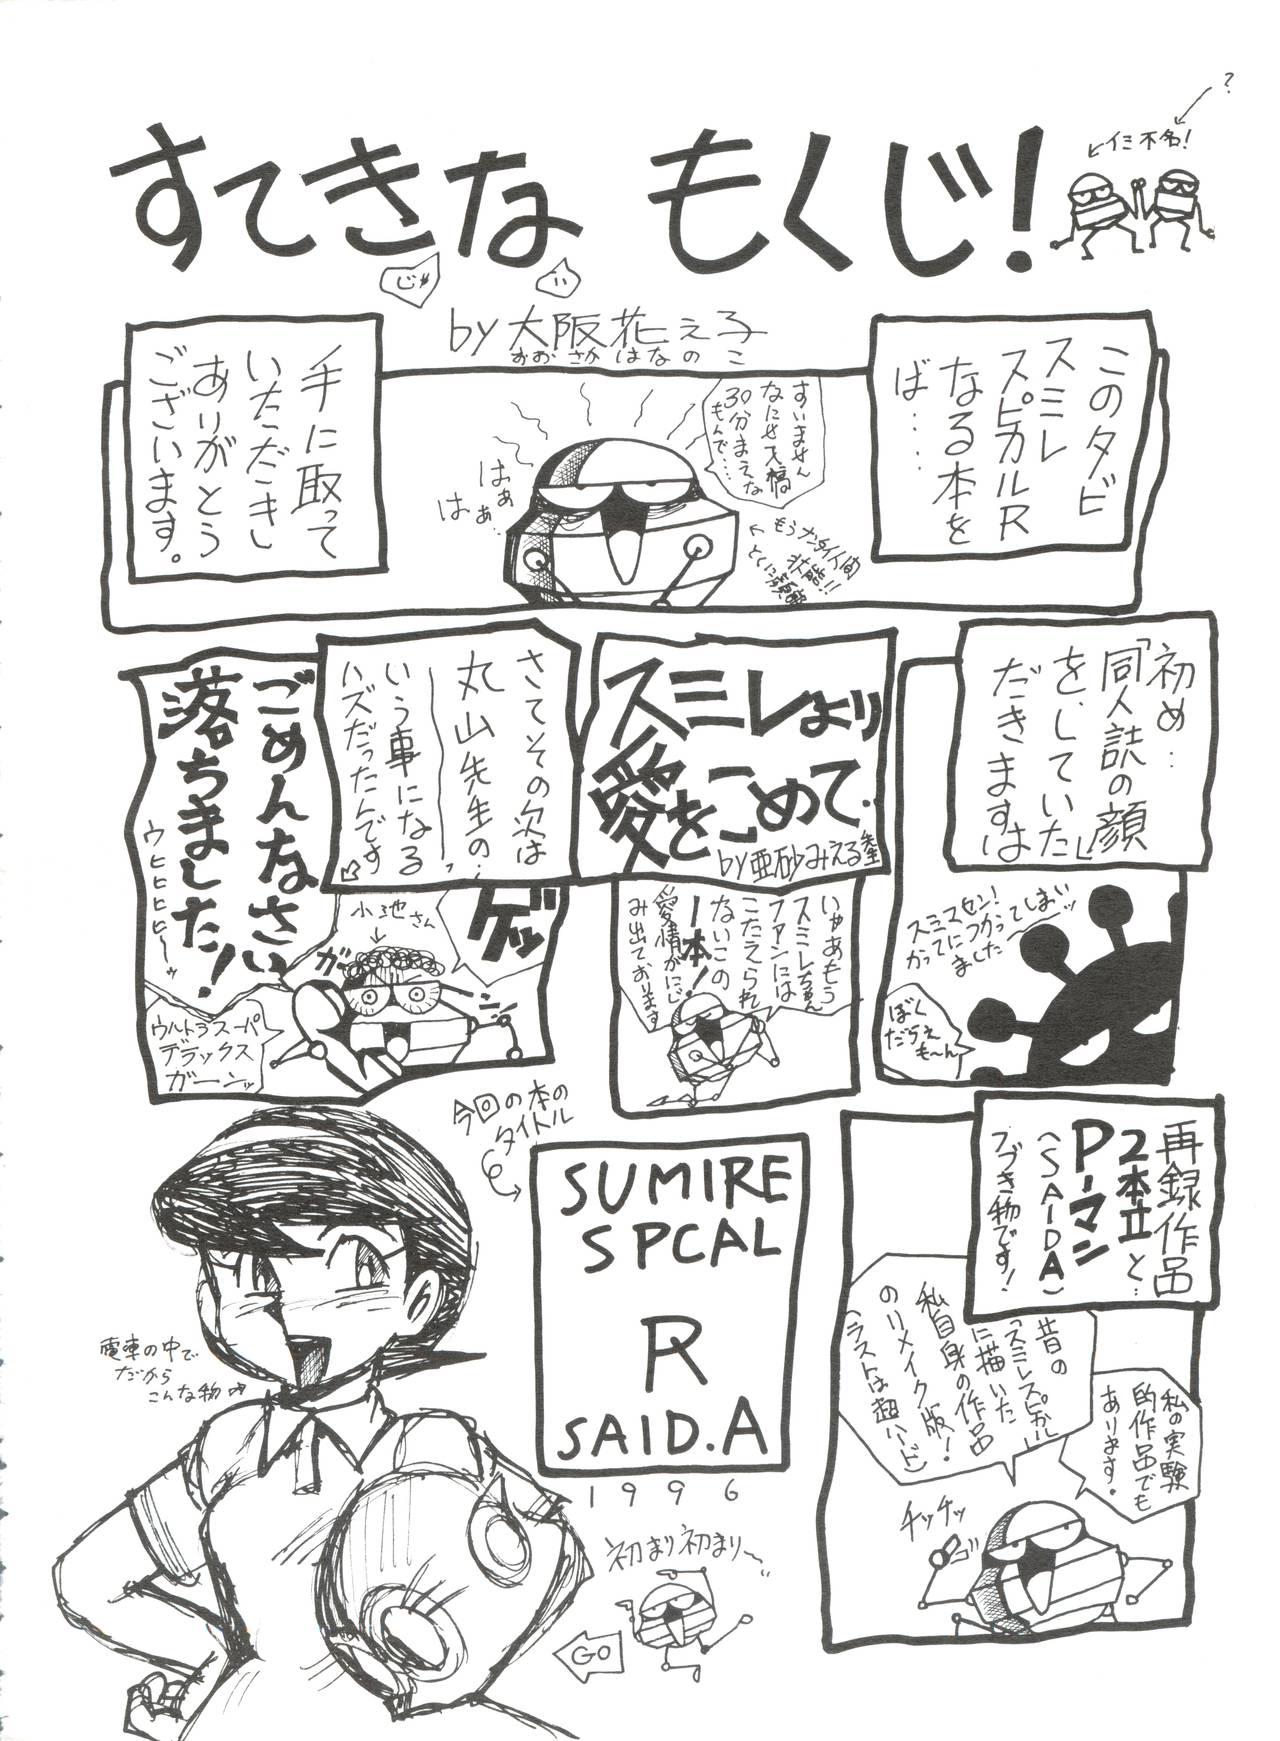 ?
←イミ不名!
すてきな もくじ!
じゃ
by 大阪花え子
おおさかはなのこ
このタビ
スミレ
スピカルR
なる本を
ば……
手に取って
いただきし
ありがとう
ございます。
すいません
なにせ入稿
30分まえな
もんで……
はぁ
はぁ…
もうナチュ人間
状態!!
初め…
「同人誌の顔」
をしていた
だきますは
スミスセン!
かってにつかってしまい
ました〜〜ッ
ぼく
だらえ
も〜ん
スミレより
愛をこめて.
by 亜砂みえる先生
いやあもう
スミレちゃん
ファンには
こたえられ
ないこの
一本!
愛情がにじ
み出ております
さてその次は
丸山先生の…
いう事になる
ハズだったんです
ごめんなさい
落ちました!
ウヒヒヒヒ〜ッ
ゲッ
小池さん
ガーン
ウルトラスーパ
デラックス
ガーンッ
再録作品
2本立と…
P-マン
(SAIDA)
フブき物です!
昔の
「スミレスピカル」
に描いた
私自身の作品
のリメイク版!
(ラストは超ハード)
私の実験
的作品でも
あります.
チッチッ
今回の本の
タイトル
SUMIRE
SPCAL
R
SAID.A
1996
電車の中で
だから
こんな物
初まり初まり〜
GO